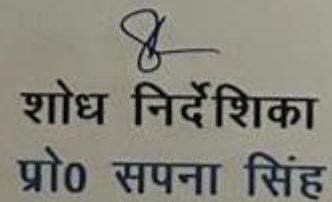 शोध निर्देशिका
प्रो0 सपना सिंह